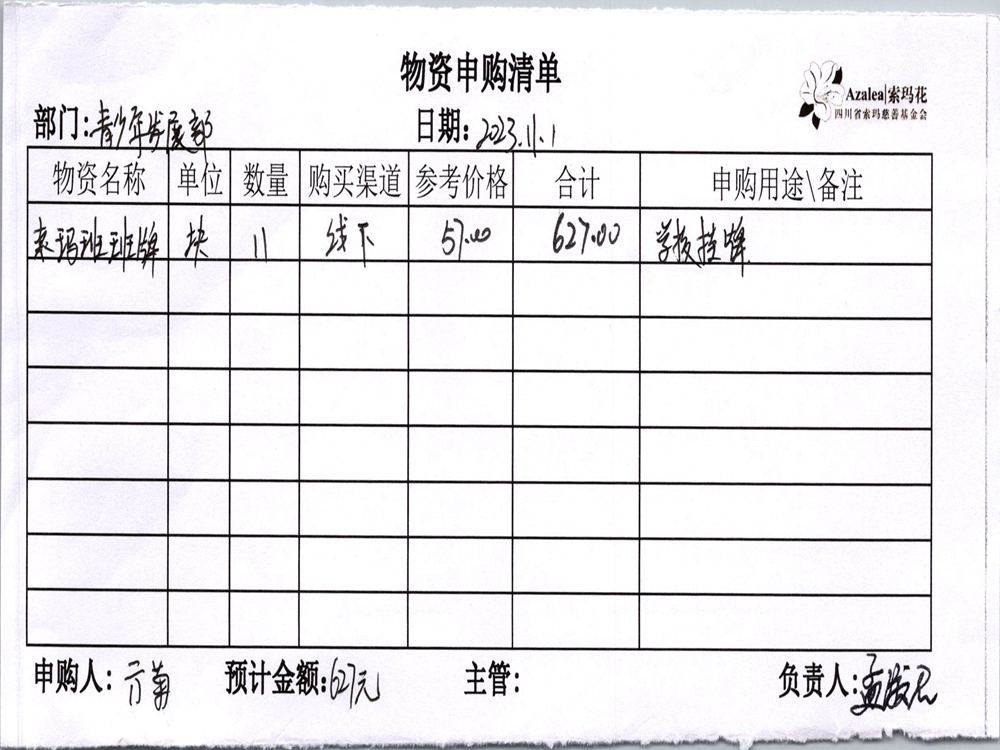 物资申购清单
Azalea|索玛花
四川省索玛慈善基金会
部门:青少年发展部 日期:2023.11.1
物资名称 单位 数量 购买渠道 参考价格 合计 申购用途\备注
索玛班班牌 块 11 线下 57.00 627.00 学校挂牌
申购人: 预计金额:627元 主管: 负责人: